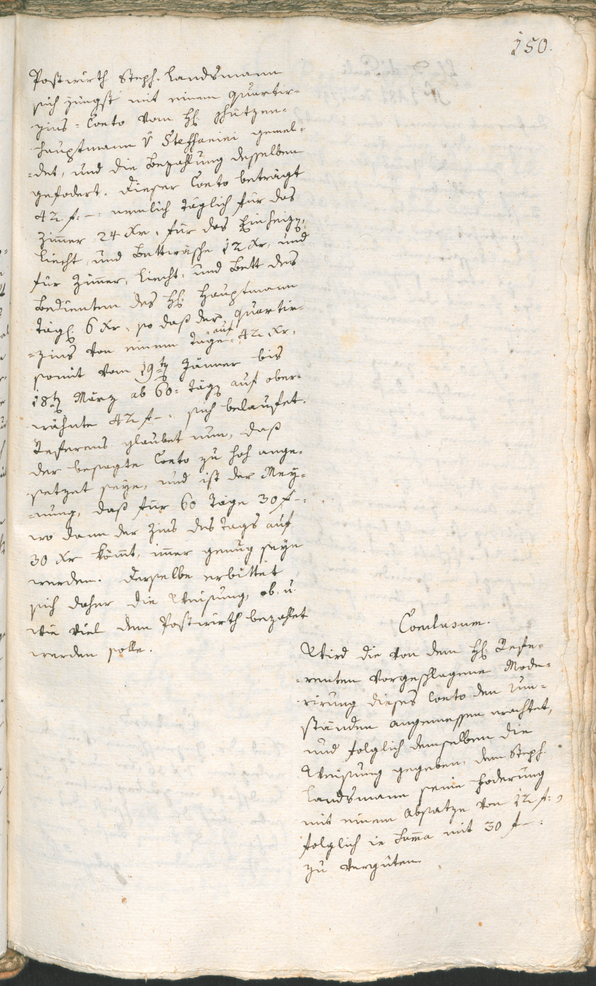 150.
Postwirth Steph. Landsmann
sich jüngst mit einem Quartier-
zins-Conto vom H: Schützen-
hauptmann v Steffanini gemel-
-det, und die Bezahlung desselben
gefodert. Dieser Conto beträgt
42 f. –, nemlich täglich für das
Zimer 24 Xr, für das Einheizen,
Liecht, und Bettwäsche 12 Xr, und
für Zimer, Liecht, und Bett des
Bedienten des H: Hauptmann
tägl: 6 Xr, so daß der Quartier-
-zins von einem Tage auf 42 Xr,
somit vom 19ten Jänner bis
18ten März ab 60: täg auf ober-
wähnte 42 f – sich belaufet.
Referens glaubet nun, daß
der besagte Conto zu hoch ange-
setzet seye, und ist der Mey-
-nung, daß für 60 Täge 30 f –
wo dann der Zins des Tags auf
30 Xr kömt, imer genug seyn
werden. Derselbe erbittet
sich daher die Weisung, ob u.
wie viel dem Postwirth bezahlet
werden solle.
Conclusum.
Wird die von dem H: Refe-
renten vorgeschlagene Mode-
rirung dieses Conto den Um-
ständen angemessen erachtet,
und folglich demselben die
Weisung gegeben, dem Steph
Landsmann seine Foderung
mit einem Absatze von 12 f:,
folglich in Suma mit 30 f – :
zu vergüten